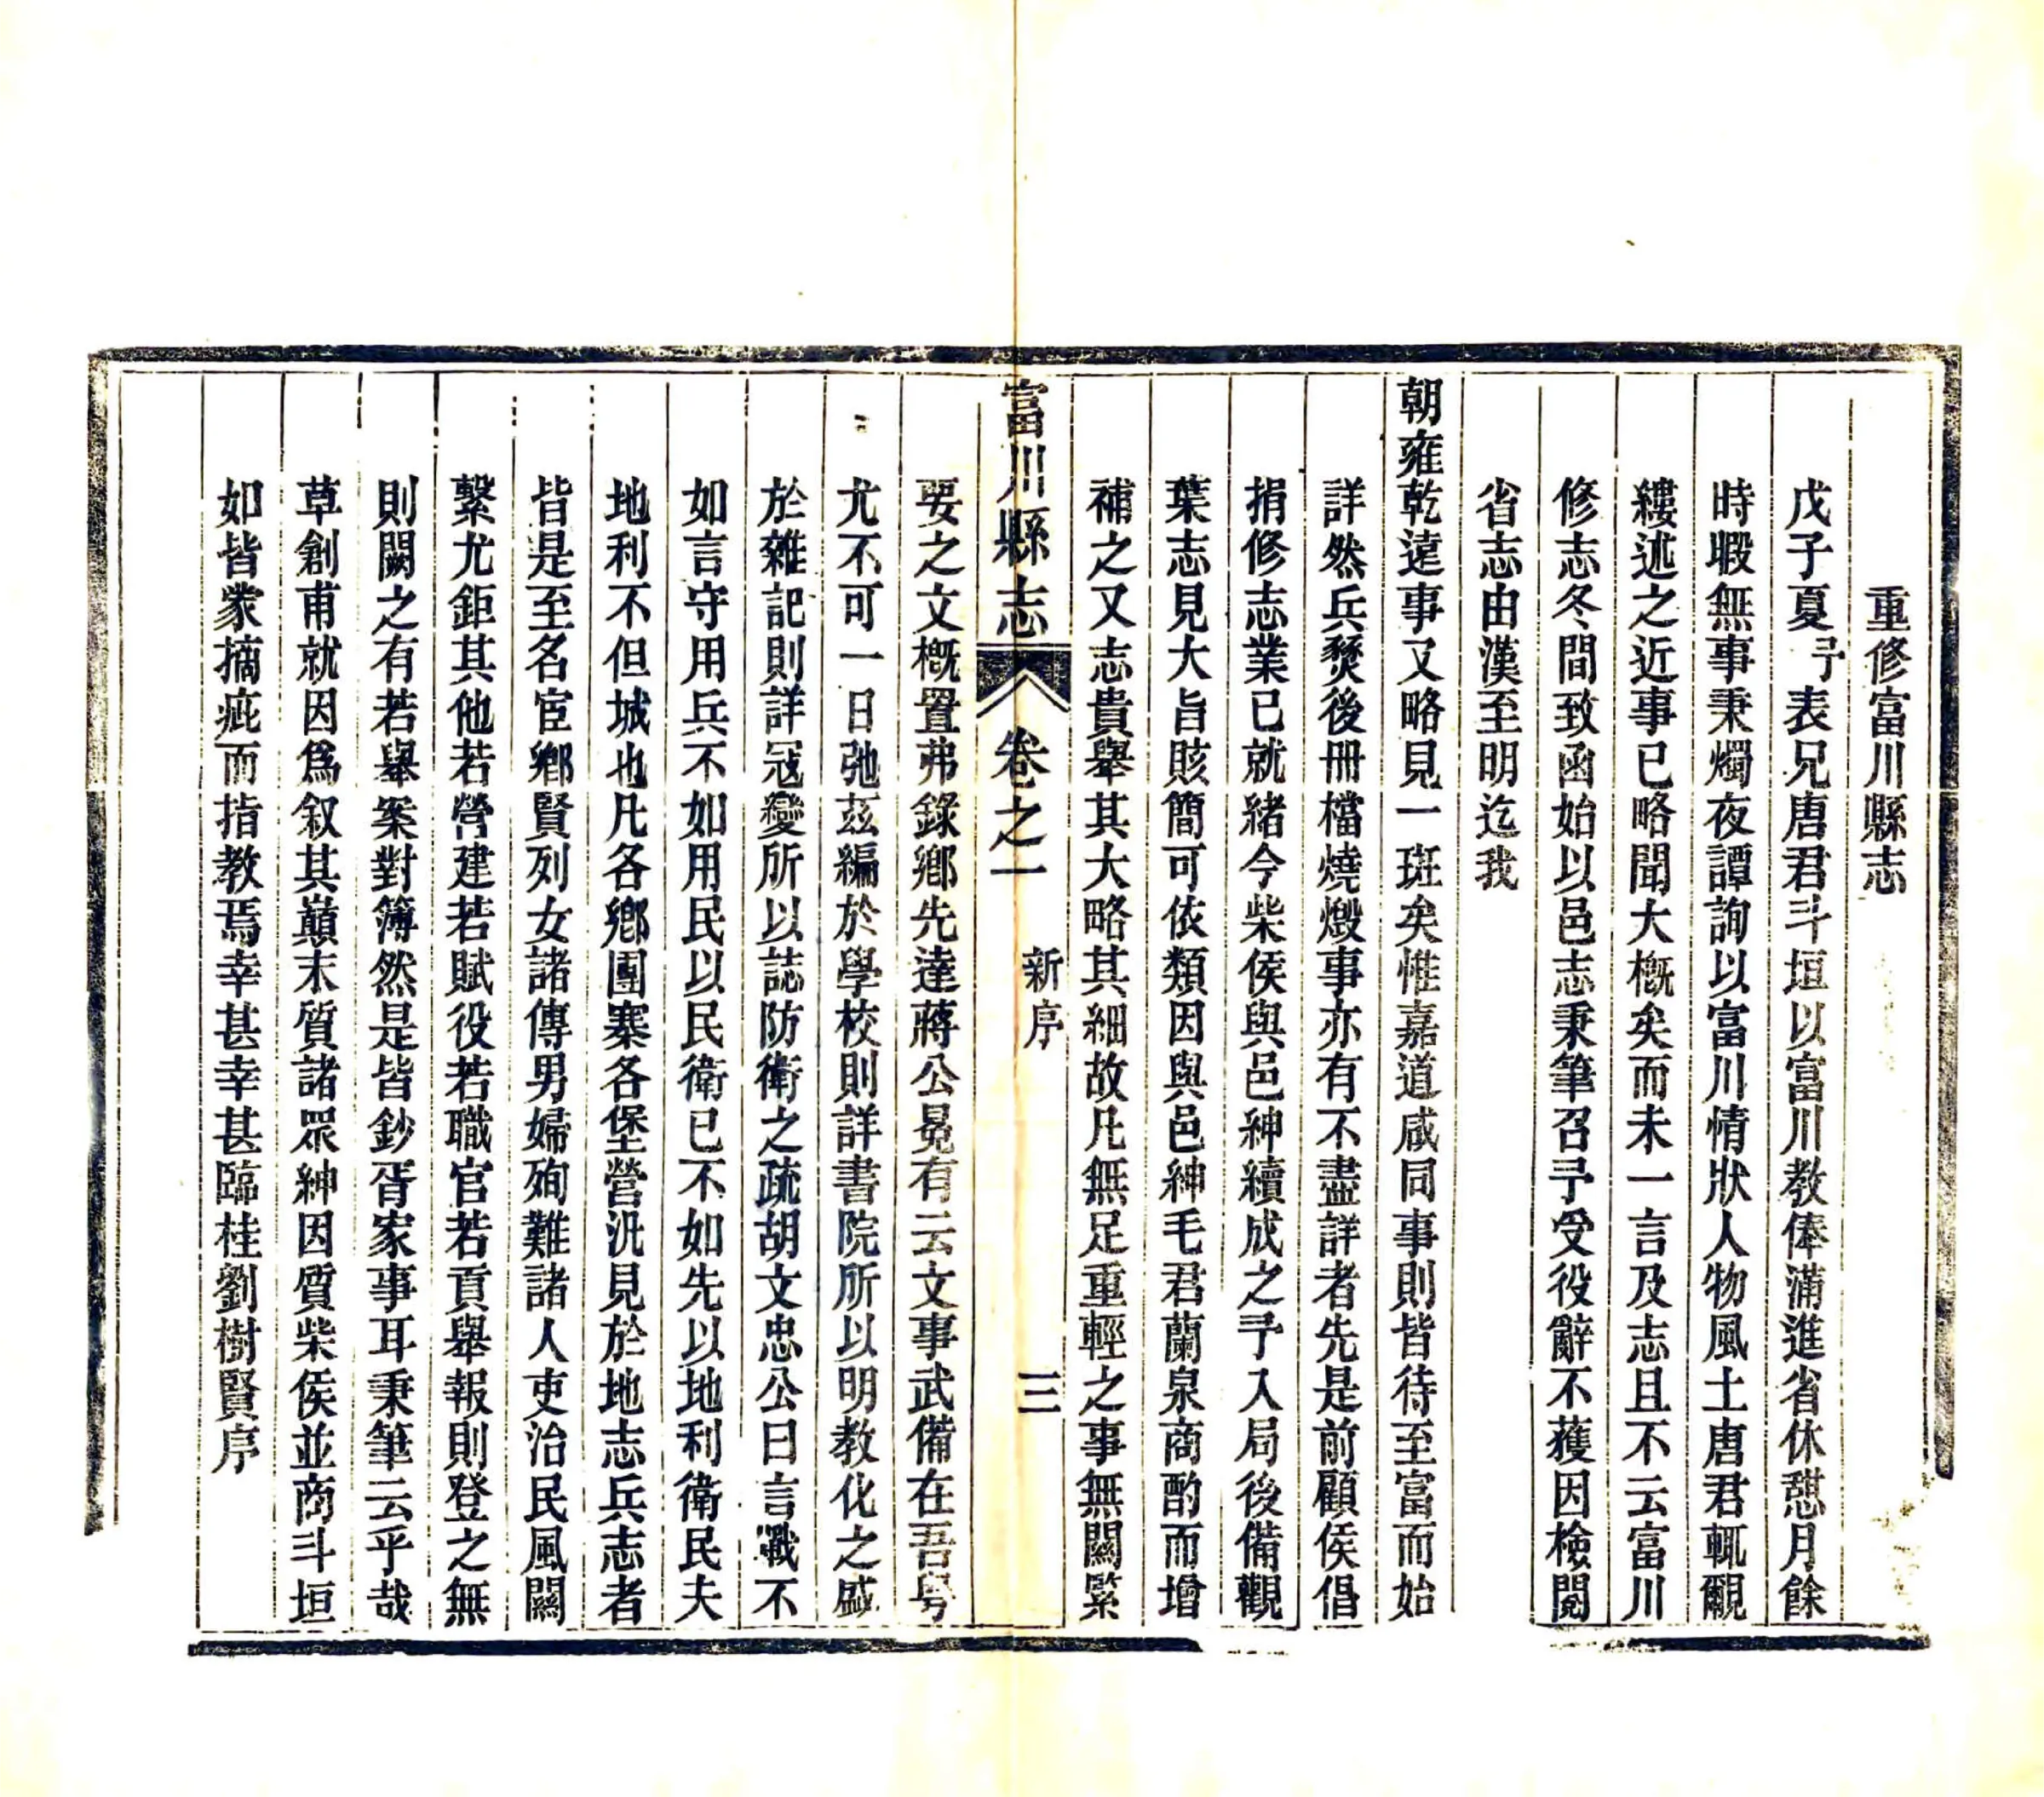 重修富川縣志
戊子夏予表兄唐君斗垣以富川教俸滿進省休憇月餘
時暇無事秉燭夜譚詢以富川情狀人物風土唐君輒覼
縷述之近事已略聞大槪矣而未一言及志且不云富川
修志冬間致函始以邑志秉筆召予受役辭不獲因檢閱
省志由漢至明迄我
朝雍乾遠事又略見一斑矣惟嘉道咸同事則皆待至富而始
詳然兵燹後冊檔燒燬事亦有不盡詳者先是前顧侯倡
捐修志業已就緒今柴侯與邑紳續成之予入局後備觀
葉志見大旨賅簡可依類因與邑紳毛君蘭泉商酌而增
補之又志貴舉其大略其細故凡無足重輕之事無關緊
富川縣志 卷之一 新序 三
要之文槪置弗錄鄉先達蔣公冕有云文事武備在吾粤
尤不可一日弛茲編於學校則詳書院所以明教化之盛
於雜記則詳冦變所以誌防衛之疏胡文忠公曰言戰不
如言守用兵不如用民以民衛已不如先以地利衛民夫
地利不但城也凡各鄉團寨各堡營汛見於地志兵志者
皆是至名宦鄉賢列女諸傳男婦殉難諸人吏治民風關
繫尤鉅其他若營建若賦役若職官若貢舉報則登之無
則闕之有若舉案對簿然是皆鈔胥家事耳秉筆云乎哉
草創甫就因爲叙其巔末質諸眾紳因質柴侯並商斗垣
如皆蒙摘疵而指教焉幸甚幸甚臨桂劉樹賢序